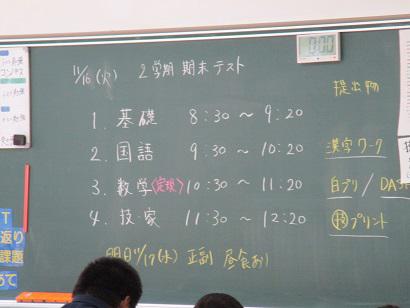 11/16(火) 2学期 期末テスト
0:00
提出物
1. 基礎 8:30 ～ 9:20
2. 国語 9:30 ～ 10:20 漢字ワーク
3. 数学(定規) 10:30 ～ 11:20 白プリ / DA
4. 技・家 11:30 ～ 12:20 技プリント
明日11/17(水) 正副 昼食あり
返り
課題